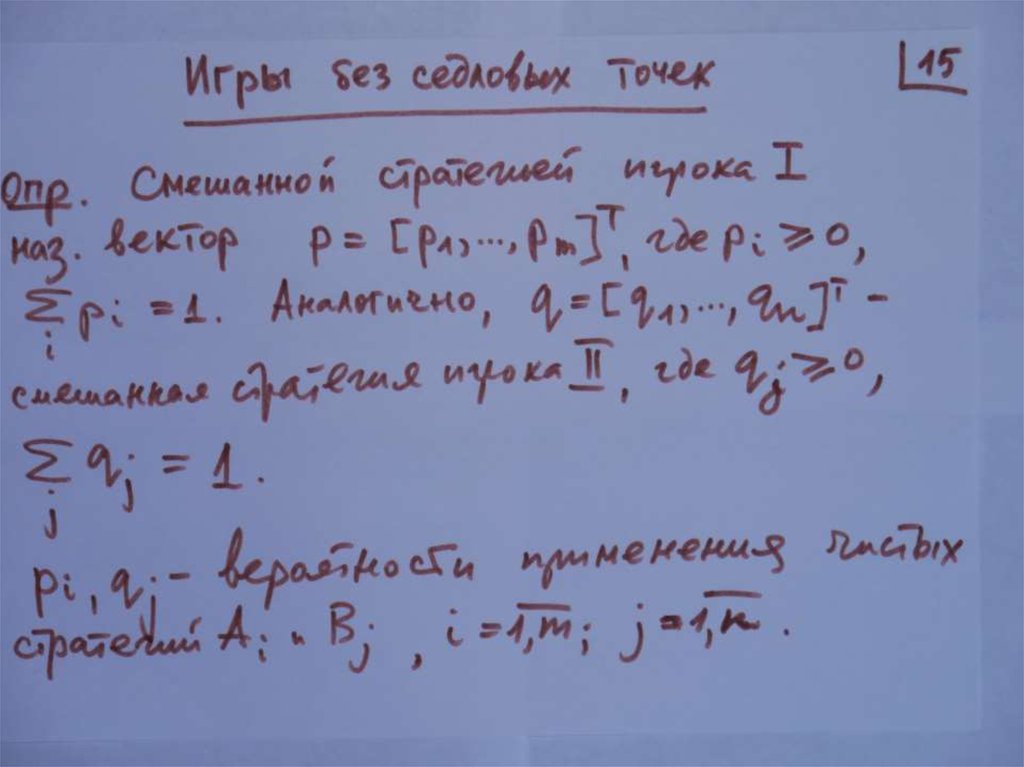 Игры без седловых точек
15
Опр. Смешанной стратегией игрока I
наз. вектор p = [p₁,..., pₘ]ᵀ, где pᵢ ≥ 0,
∑ᵢ pᵢ = 1. Аналогично, q = [q₁,..., qₙ]ᵀ –
смешанная стратегия игрока II, где qⱼ ≥ 0,
∑ⱼ qⱼ = 1.
pᵢ, qⱼ – вероятности применения чистых
стратегий Aᵢ и Bⱼ, i = 1,m̅; j = 1,n̅.